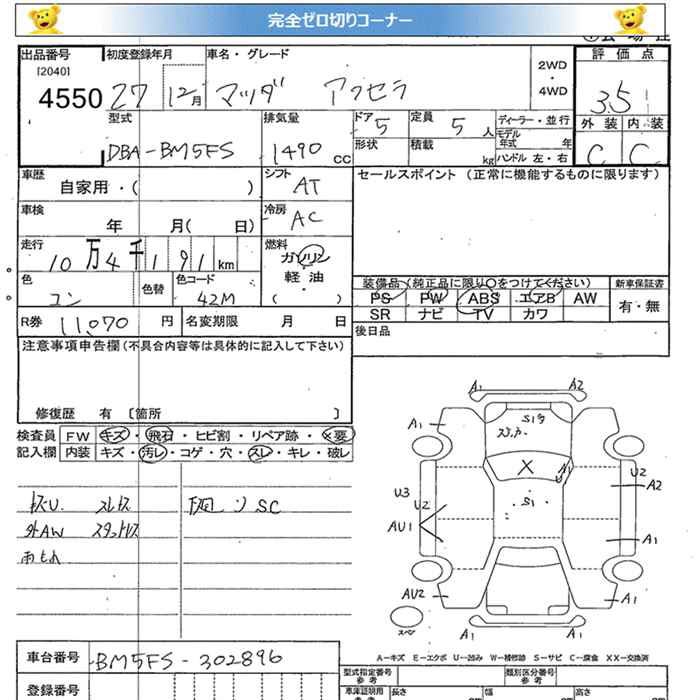 完全ゼロ切りコーナー
出品番号 初度登録年月 車名・グレード 2WD・4WD 評価点
[2040]
4550 27 12月 マツダ アクセラ 3.5
型式 排気量 ドア 定員 ディーラー・並行 外装 内装
DBA-BM5FS 1490 CC 5 5人 モデル年式 年 C C
形状 積載 kg ハンドル 左・右
車歴 シフト セールスポイント (正常に機能するものに限ります)
自家用・( ) AT
車検 冷房
年 月( 日) AC
走行 燃料
10万4千191km ガソリン
軽油
( )
色 色替 色コード
コン 42M
装備品(純正品に限り○をつけてください) 新車保証書
PS PW ABS エアB AW 有・無
SR ナビ TV カワ
R券 11,070円 名変期限 月 日 後日品
注意事項申告欄(不具合内容等は具体的に記入して下さい)
修復歴 有 〔箇所 〕
検査員 FW キズ・飛石・ヒビ割・リペア跡・×要
記入欄 内装 キズ・汚レ・コゲ・穴・スレ・キレ・破レ
外AW スタットレス
A1 A2
A1 S1多
X U1
U3 U2 S1 U2
A2
AU1 A1
AU2 A1
A1 A1
スペア
A-キズ E-エクボ U-凹み W-補修跡 S-サビ C-腐食 XX-交換済
車台番号 BM5FS-302896
登録番号
型式指定番号 参考 類別区分番号 参考
車庫証明用 参考 長さ 幅 高さ